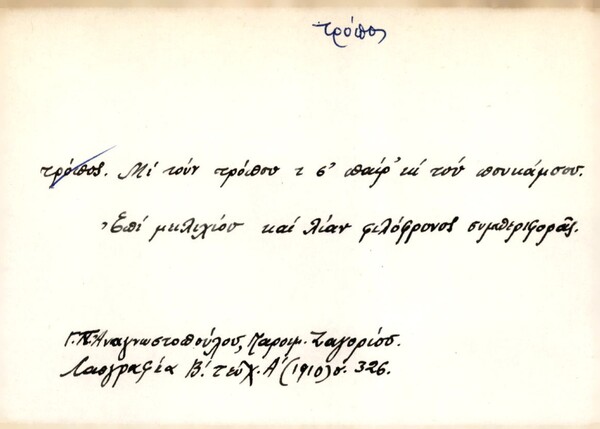 τρόπος
τρόπος. Μὶ τοὺν τρόπου τ σ' παίρ' κὶ τοὺ πουκάμσου.
Ἐπὶ μειλιχίου καὶ λίαν φιλόφρονος συμπεριφορᾶς.
Γ.Π. Ἀναγνωστοπούλου, Παροιμ. Ζαγορίου.
Λαογραφία Β'. τεῦχ. Α' (1910) σ. 326.